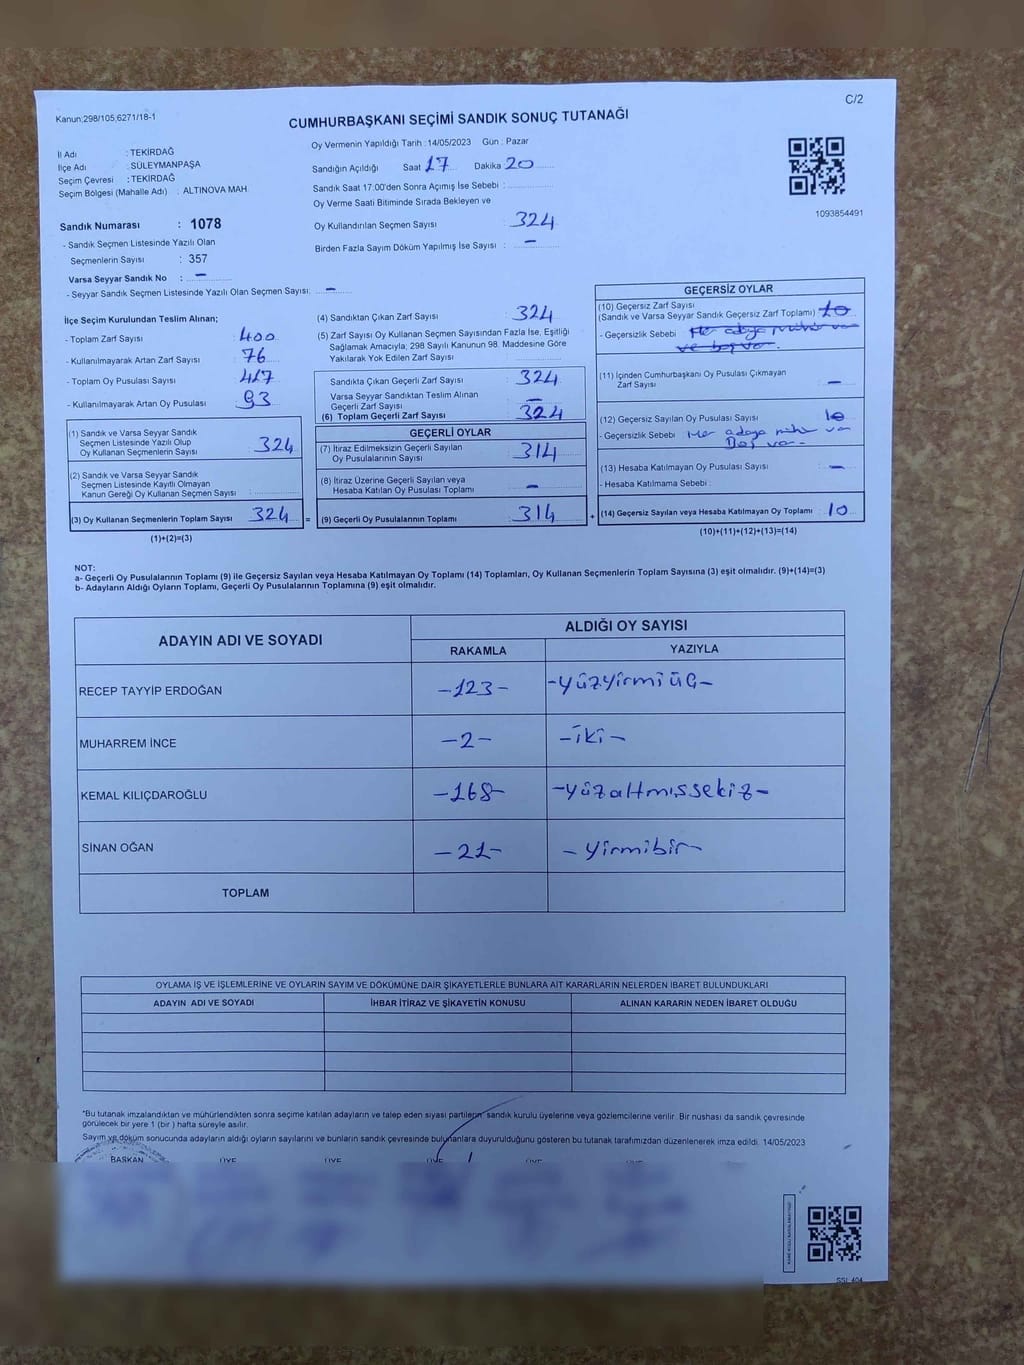 C/2
Kanun:298/105,6271/18-1
CUMHURBAŞKANI SEÇİMİ SANDIK SONUÇ TUTANAĞI
İl Adı : TEKİRDAĞ
İlçe Adı : SÜLEYMANPAŞA
Seçim Çevresi : TEKİRDAĞ
Seçim Bölgesi (Mahalle Adı) : ALTINOVA MAH.
Oy Vermenin Yapıldığı Tarih : 14/05/2023 Gün : Pazar
Sandığın Açıldığı Saat 17 Dakika 20
Sandık Saat 17:00'den Sonra Açımış İse Sebebi :
Oy Verme Saati Bitiminde Sırada Bekleyen ve
Oy Kullandırılan Seçmen Sayısı : 324
Birden Fazla Sayım Döküm Yapılmış İse Sayısı : -
1093854491
Sandık Numarası : 1078
- Sandık Seçmen Listesinde Yazılı Olan
Seçmenlerin Sayısı : 357
Varsa Seyyar Sandık No : -
- Seyyar Sandık Seçmen Listesinde Yazılı Olan Seçmen Sayısı: -
İlçe Seçim Kurulundan Teslim Alınan;
- Toplam Zarf Sayısı : 400
- Kullanılmayarak Artan Zarf Sayısı : 76
- Toplam Oy Pusulası Sayısı : 417
- Kullanılmayarak Artan Oy Pusulası : 93
(1) Sandık ve Varsa Seyyar Sandık
Seçmen Listesinde Yazılı Olup
Oy Kullanan Seçmenlerin Sayısı : 324
(2) Sandık ve Varsa Seyyar Sandık
Seçmen Listesinde Kayıtlı Olmayan
Kanun Gereği Oy Kullanan Seçmen Sayısı :
(3) Oy Kullanan Seçmenlerin Toplam Sayısı : 324 =
(1)+(2)=(3)
(4) Sandıktan Çıkan Zarf Sayısı : 324
(5) Zarf Sayısı Oy Kullanan Seçmen Sayısından Fazla İse, Eşitliği
Sağlamak Amacıyla, 298 Sayılı Kanunun 98. Maddesine Göre
Yakılarak Yok Edilen Zarf Sayısı :
Sandıkta Çıkan Geçerli Zarf Sayısı : 324
Varsa Seyyar Sandıktan Teslim Alınan
Geçerli Zarf Sayısı : -
(6) Toplam Geçerli Zarf Sayısı : 324
GEÇERLİ OYLAR
(7) İtiraz Edilmeksizin Geçerli Sayılan
Oy Pusulalarının Sayısı : 314
(8) İtiraz Üzerine Geçerli Sayılan veya
Hesaba Katılan Oy Pusulası Toplamı : -
(9) Geçerli Oy Pusulalarının Toplamı : 314 +
GEÇERSİZ OYLAR
(10) Geçersiz Zarf Sayısı
(Sandık ve Varsa Seyyar Sandık Geçersiz Zarf Toplamı) : 10
- Geçersizlik Sebebi : Her adaya mühür var
ve boş var.
(11) İçinden Cumhurbaşkanı Oy Pusulası Çıkmayan
Zarf Sayısı : -
(12) Geçersiz Sayılan Oy Pusulası Sayısı : 10
- Geçersizlik Sebebi : Her adaya mühür var
Boş var-
(13) Hesaba Katılmayan Oy Pusulası Sayısı : -
- Hesaba Katılmama Sebebi :
(14) Geçersiz Sayılan veya Hesaba Katılmayan Oy Toplamı : 10
(10)+(11)+(12)+(13)=(14)
NOT:
a- Geçerli Oy Pusulalarının Toplamı (9) ile Geçersiz Sayılan veya Hesaba Katılmayan Oy Toplamı (14) Toplamları, Oy Kullanan Seçmenlerin Toplam Sayısına (3) eşit olmalıdır. (9)+(14)=(3)
b- Adayların Aldığı Oyların Toplamı, Geçerli Oy Pusulalarının Toplamına (9) eşit olmalıdır.
ADAYIN ADI VE SOYADI
ALDIĞI OY SAYISI
RAKAMLA YAZIYLA
RECEP TAYYİP ERDOĞAN -123- -yüzyirmiüç-
MUHARREM İNCE -2- -iki-
KEMAL KILIÇDAROĞLU -168- -yüzaltmışsekiz-
SİNAN OĞAN -21- -yirmibir-
TOPLAM
OYLAMA İŞ VE İŞLEMLERİNE VE OYLARIN SAYIM VE DÖKÜMÜNE DAİR ŞİKAYETLERLE BUNLARA AİT KARARLARIN NELERDEN İBARET BULUNDUKLARI
ADAYIN ADI VE SOYADI İHBAR İTİRAZ VE ŞİKAYETİN KONUSU ALINAN KARARIN NEDEN İBARET OLDUĞU
*Bu tutanak imzalandıktan ve mühürlendikten sonra seçime katılan adayların ve talep eden siyasi partilerin sandık kurulu üyelerine veya gözlemcilerine verilir. Bir nüshası da sandık çevresinde
görülecek bir yere 1 (bir) hafta süreyle asılır.
Sayım ve döküm sonucunda adayların aldığı oyların sayılarını ve bunların sandık çevresinde bulunanlara duyurulduğunu gösteren bu tutanak tarafımızdan düzenlenerek imza edildi. 14/05/2023
BAŞKAN ÜYE ÜYE ÜYE ÜYE
SSI: 404